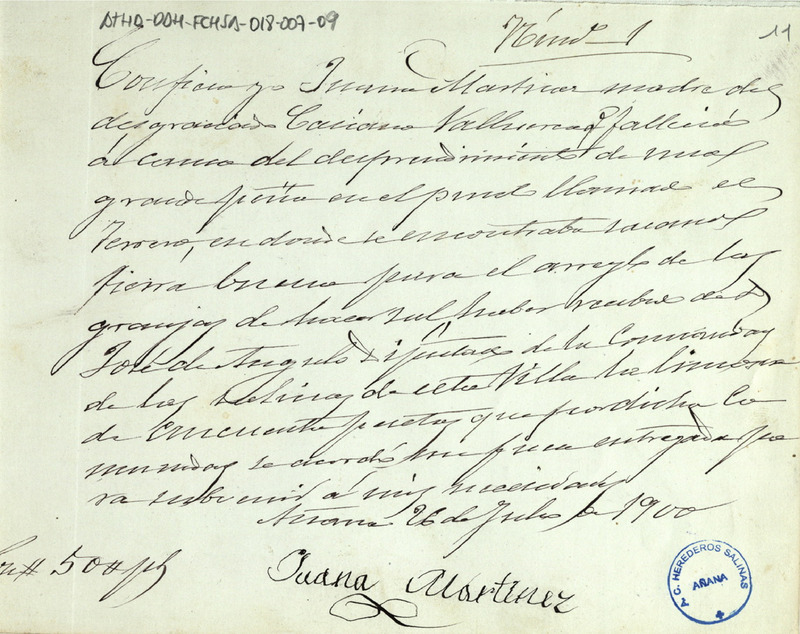 ATHA-DAH-FCHSA-018-007-09
11
Núm.º 1
Confieso yo Juana Martinez madre del
desgraciado Casiano Valluerca q.e fallecio
á causa del desprendimiento de una
grande peña en el punto llamado el
Terrero, en donde se encontraba sacando
tierra buena para el arreglo de las
granjas de hacer sal haber recibido de D.
José de Angulo Diputado de la Comunidad
de las salinas de esta Villa la limosna
de cincuenta pesetas que por dicha Co
munidad se acordó me fuera entregada pa
ra subvenir á mis necesidades
Añana 26 de Julio de 1900
Son # 50 # pts
Juana Martinez
A.C. HEREDEROS SALINAS
AÑANA